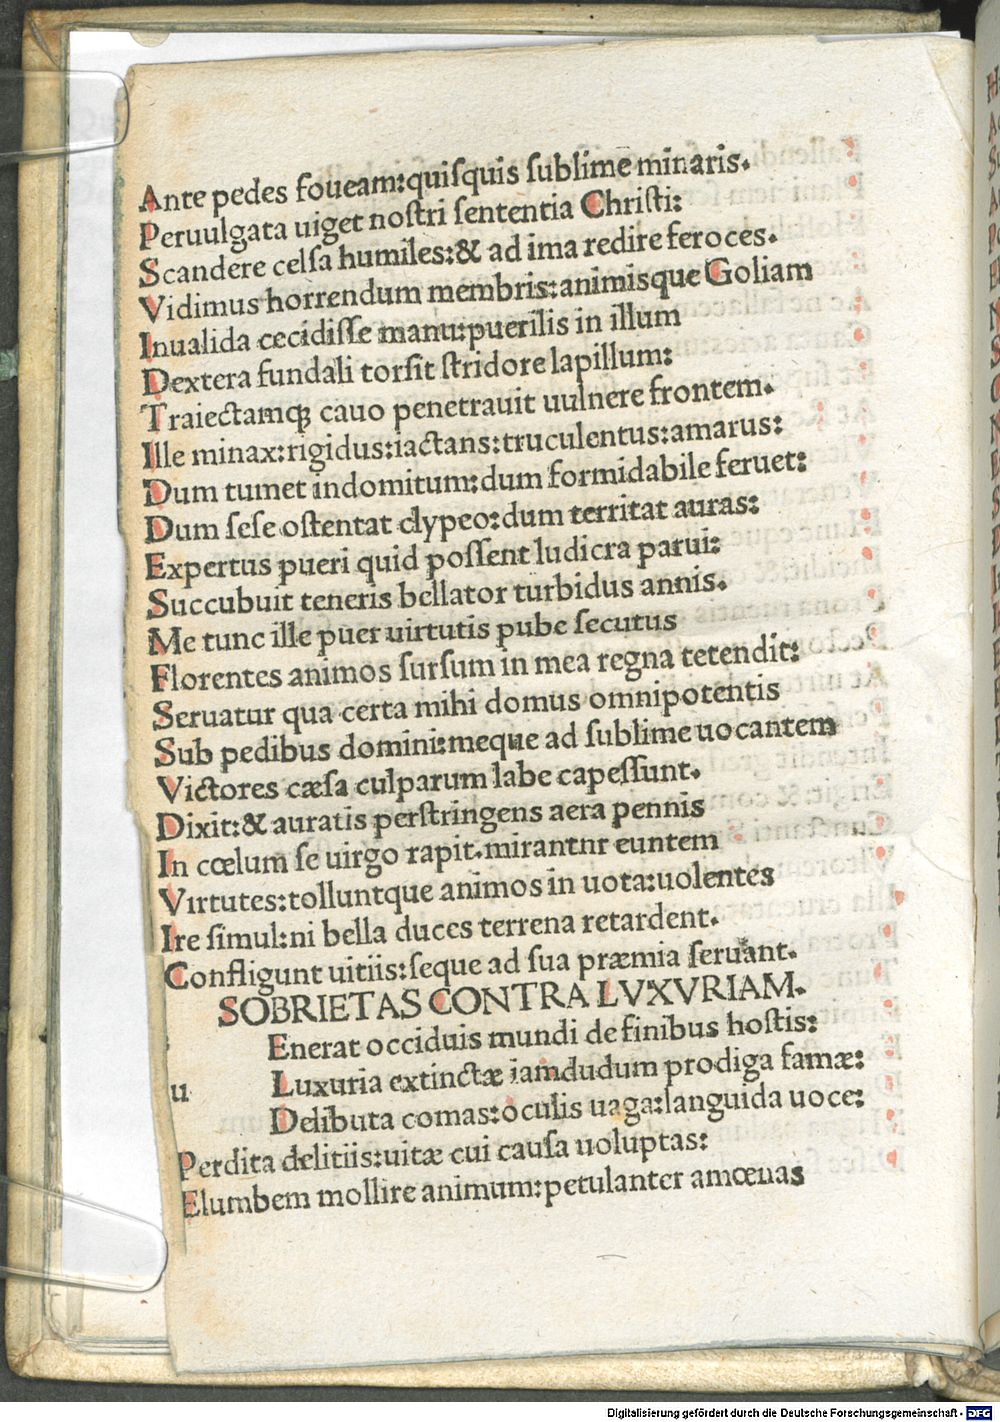 Ante pedes foueam:quiſquis ſublime minaris.
Peruulgata uiget noſtri ſententia Chriſti:
Scandere celſa humiles:& ad ima redire feroces.
Vidimus horrendum membris:animisque Goliam
Inualida cecidiſſe manu:puerilis in illum
Dextera fundali torſit ſtridore lapillum:
Traiectamqꝫ cauo penetrauit uulnere frontem.
Ille minax:rigidus:iactans:truculentus:amarus:
Dum tumet indomitum:dum formidabile feruet:
Dum ſeſe oſtentat clypeo:dum territat auras:
Expertus pueri quid poſſent ludicra parui:
Succubuit teneris bellator turbidus annis.
Me tunc ille puer uirtutis pube ſecutus
Florentes animos ſurſum in mea regna tetendit:
Seruatur qua certa mihi domus omnipotentis
Sub pedibus domini:meque ad ſublime uocantem
Victores cæſa culparum labe capeſſunt.
Dixit:& auratis perſtringens aera pennis
In cœlum ſe uirgo rapit.mirantnr euntem
Virtutes:tolluntque animos in uota:uolentes
Ire ſimul:ni bella duces terrena retardent.
Confligunt uitiis:ſeque ad ſua præmia ſeruant.
SOBRIETAS CONTRA LVXVRIAM.
Enerat occiduis mundi de finibus hoſtis:
u Luxuria extinctæ iamdudum prodiga famæ:
Delibuta comas:oculis uaga:languida uoce:
Perdita delitiis:uitæ cui cauſa uoluptas:
Elumbem mollire animum:petulanter amœnas
Digitalisierung gefördert durch die Deutsche Forschungsgemeinschaft - DFG